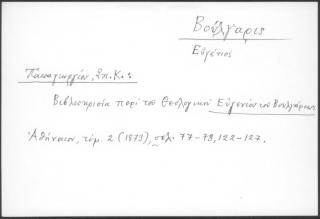 Βούλγαρις
Εὐγένιος
Παπαγεωργίου, Σπ. Κ.:
Βιβλιοκρισία περὶ τοῦ Θεολογικοῦ Εὐγενίου τοῦ Βουλγάρεως
Ἀθήναιον, τόμ. 2 (1873), σελ. 77-79, 122-127.